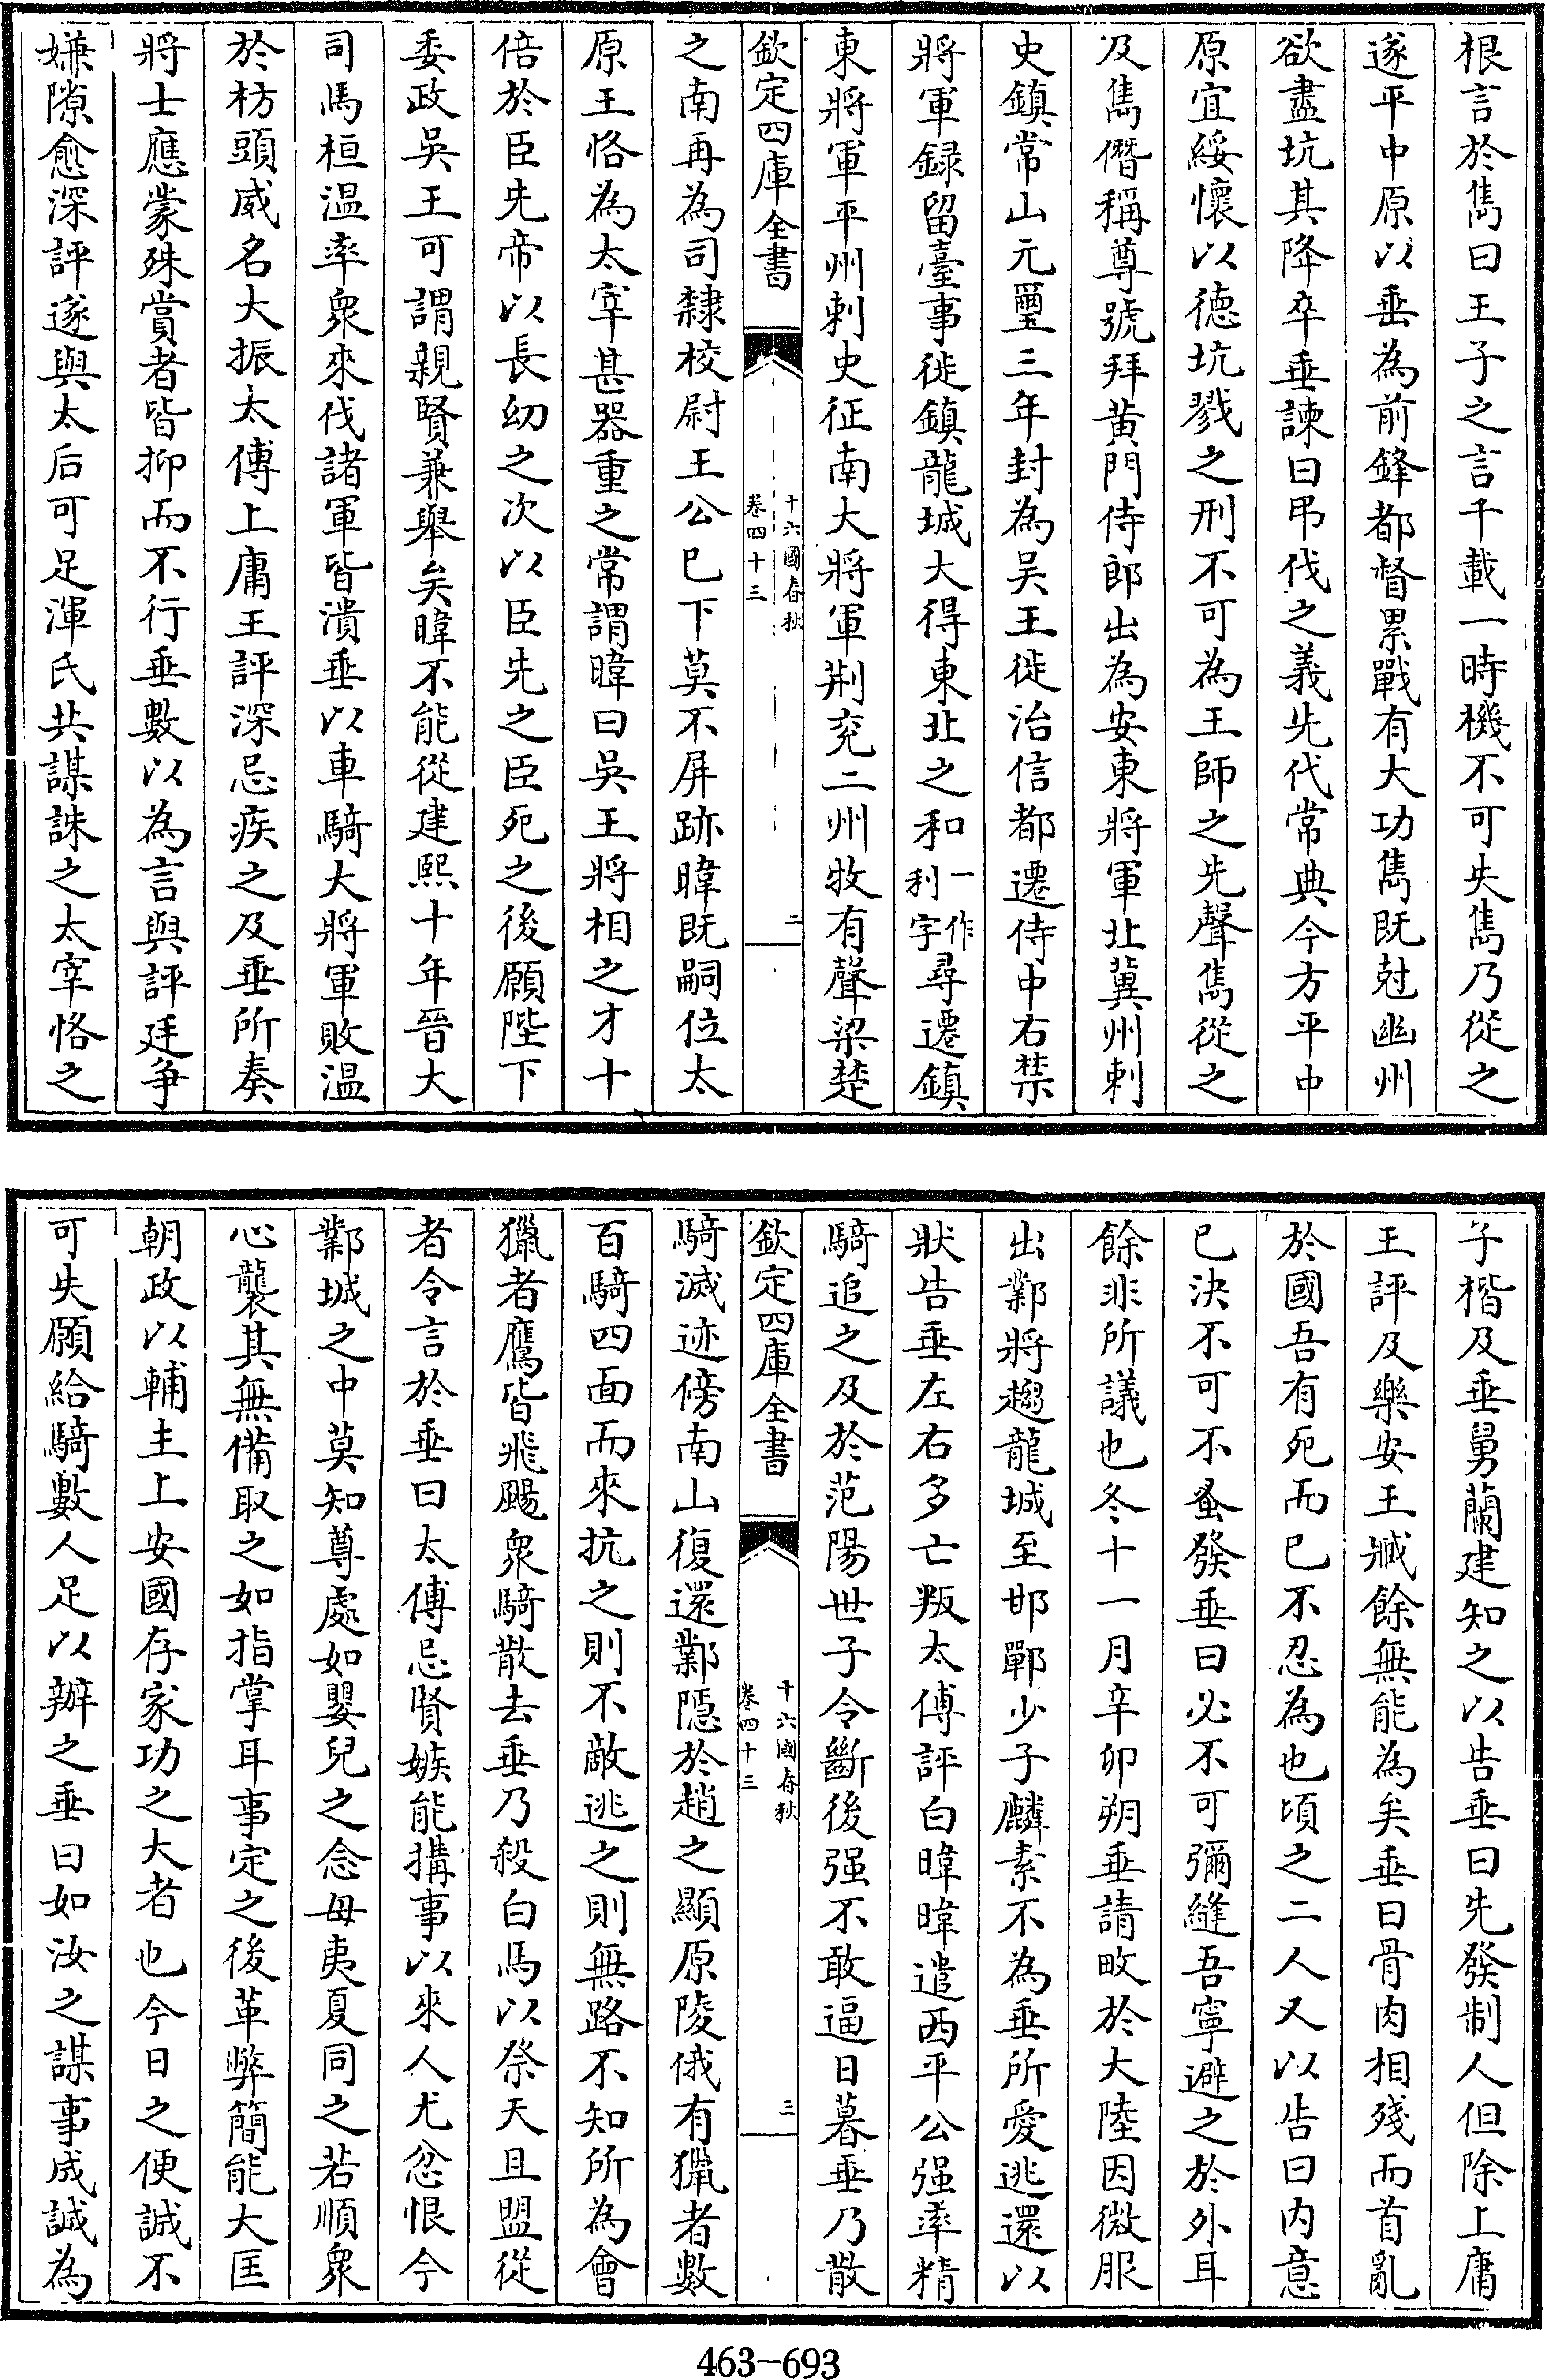 根言於雋曰王子之言千載一時機不可失雋乃從之
遂平中原以垂為前鋒都督累戰有大功雋既尅幽州
欲盡坑其降卒垂諫曰弔伐之義先代常典今方平中
原宜綏懷以德坑戮之刑不可為王師之先聲雋從之
及雋僭稱尊號拜黄門侍郎出為安東將軍北冀州刺
史鎮常山元璽三年封為吴王徙治信都遷侍中右禁
將軍録留臺事徙鎮龍城大得東北之和一作利字尋遷鎮
東將軍平州刺史征南大將軍荆兖二州牧有聲梁楚
欽定四庫全書
十六國春秋
卷四十三
二
之南再為司隸校尉王公已下莫不屏跡暐既嗣位太
原王恪為太宰甚器重之常謂暐曰吳王將相之才十
倍於臣先帝以長幼之次以臣先之臣死之後願陛下
委政吳王可謂親賢兼舉矣暐不能從建熙十年晉大
司馬桓温率衆來伐諸軍皆潰垂以車騎大將軍敗温
於枋頭威名大振太傅上庸王評深忌疾之及垂所奏
將士應蒙殊賞者皆抑而不行垂數以為言與評廷争
嫌隙愈深評遂與太后可足渾氏共謀誅之太宰恪之
子楷及垂舅蘭建知之以告垂曰先發制人但除上庸
王評及樂安王臧餘無能為矣垂曰骨肉相殘而首亂
於國吾有死而已不忍為也頃之二人又以告曰内意
已決不可不蚤發垂曰必不可彌縫吾寧避之於外耳
餘非所議也冬十一月辛卯朔垂請畋於大陸因微服
出鄴將趨龍城至邯鄲少子麟素不為垂所愛逃還以
狀告垂左右多亡叛太傅評白暐暐遣西平公强率精
騎追之及於范陽世子令斷後强不敢逼日暮垂乃散
欽定四庫全書
十六國春秋
卷四十三
三
騎滅迹傍南山復還鄴隱於趙之顯原陵俄有獵者數
百騎四面而來抗之則不敵逃之則無路不知所為會
獵者鷹皆飛颺衆騎散去垂乃殺白馬以祭天且盟從
者令言於垂曰太傅忌賢嫉能搆事以來人尤忿恨今
鄴城之中莫知尊處如嬰兒之念母夷夏同之若順衆
心襲其無備取之如指掌耳事定之後革弊簡能大匡
朝政以輔主上安國存家功之大者也今日之便誠不
可失願給騎數人足以辦之垂曰如汝之謀事成誠為
463-693